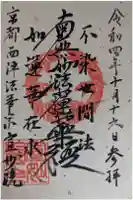 令和四年十月十六日参拝
不求世間法
南無妙法蓮華経
如蓮華在水
京都西陣法華宗